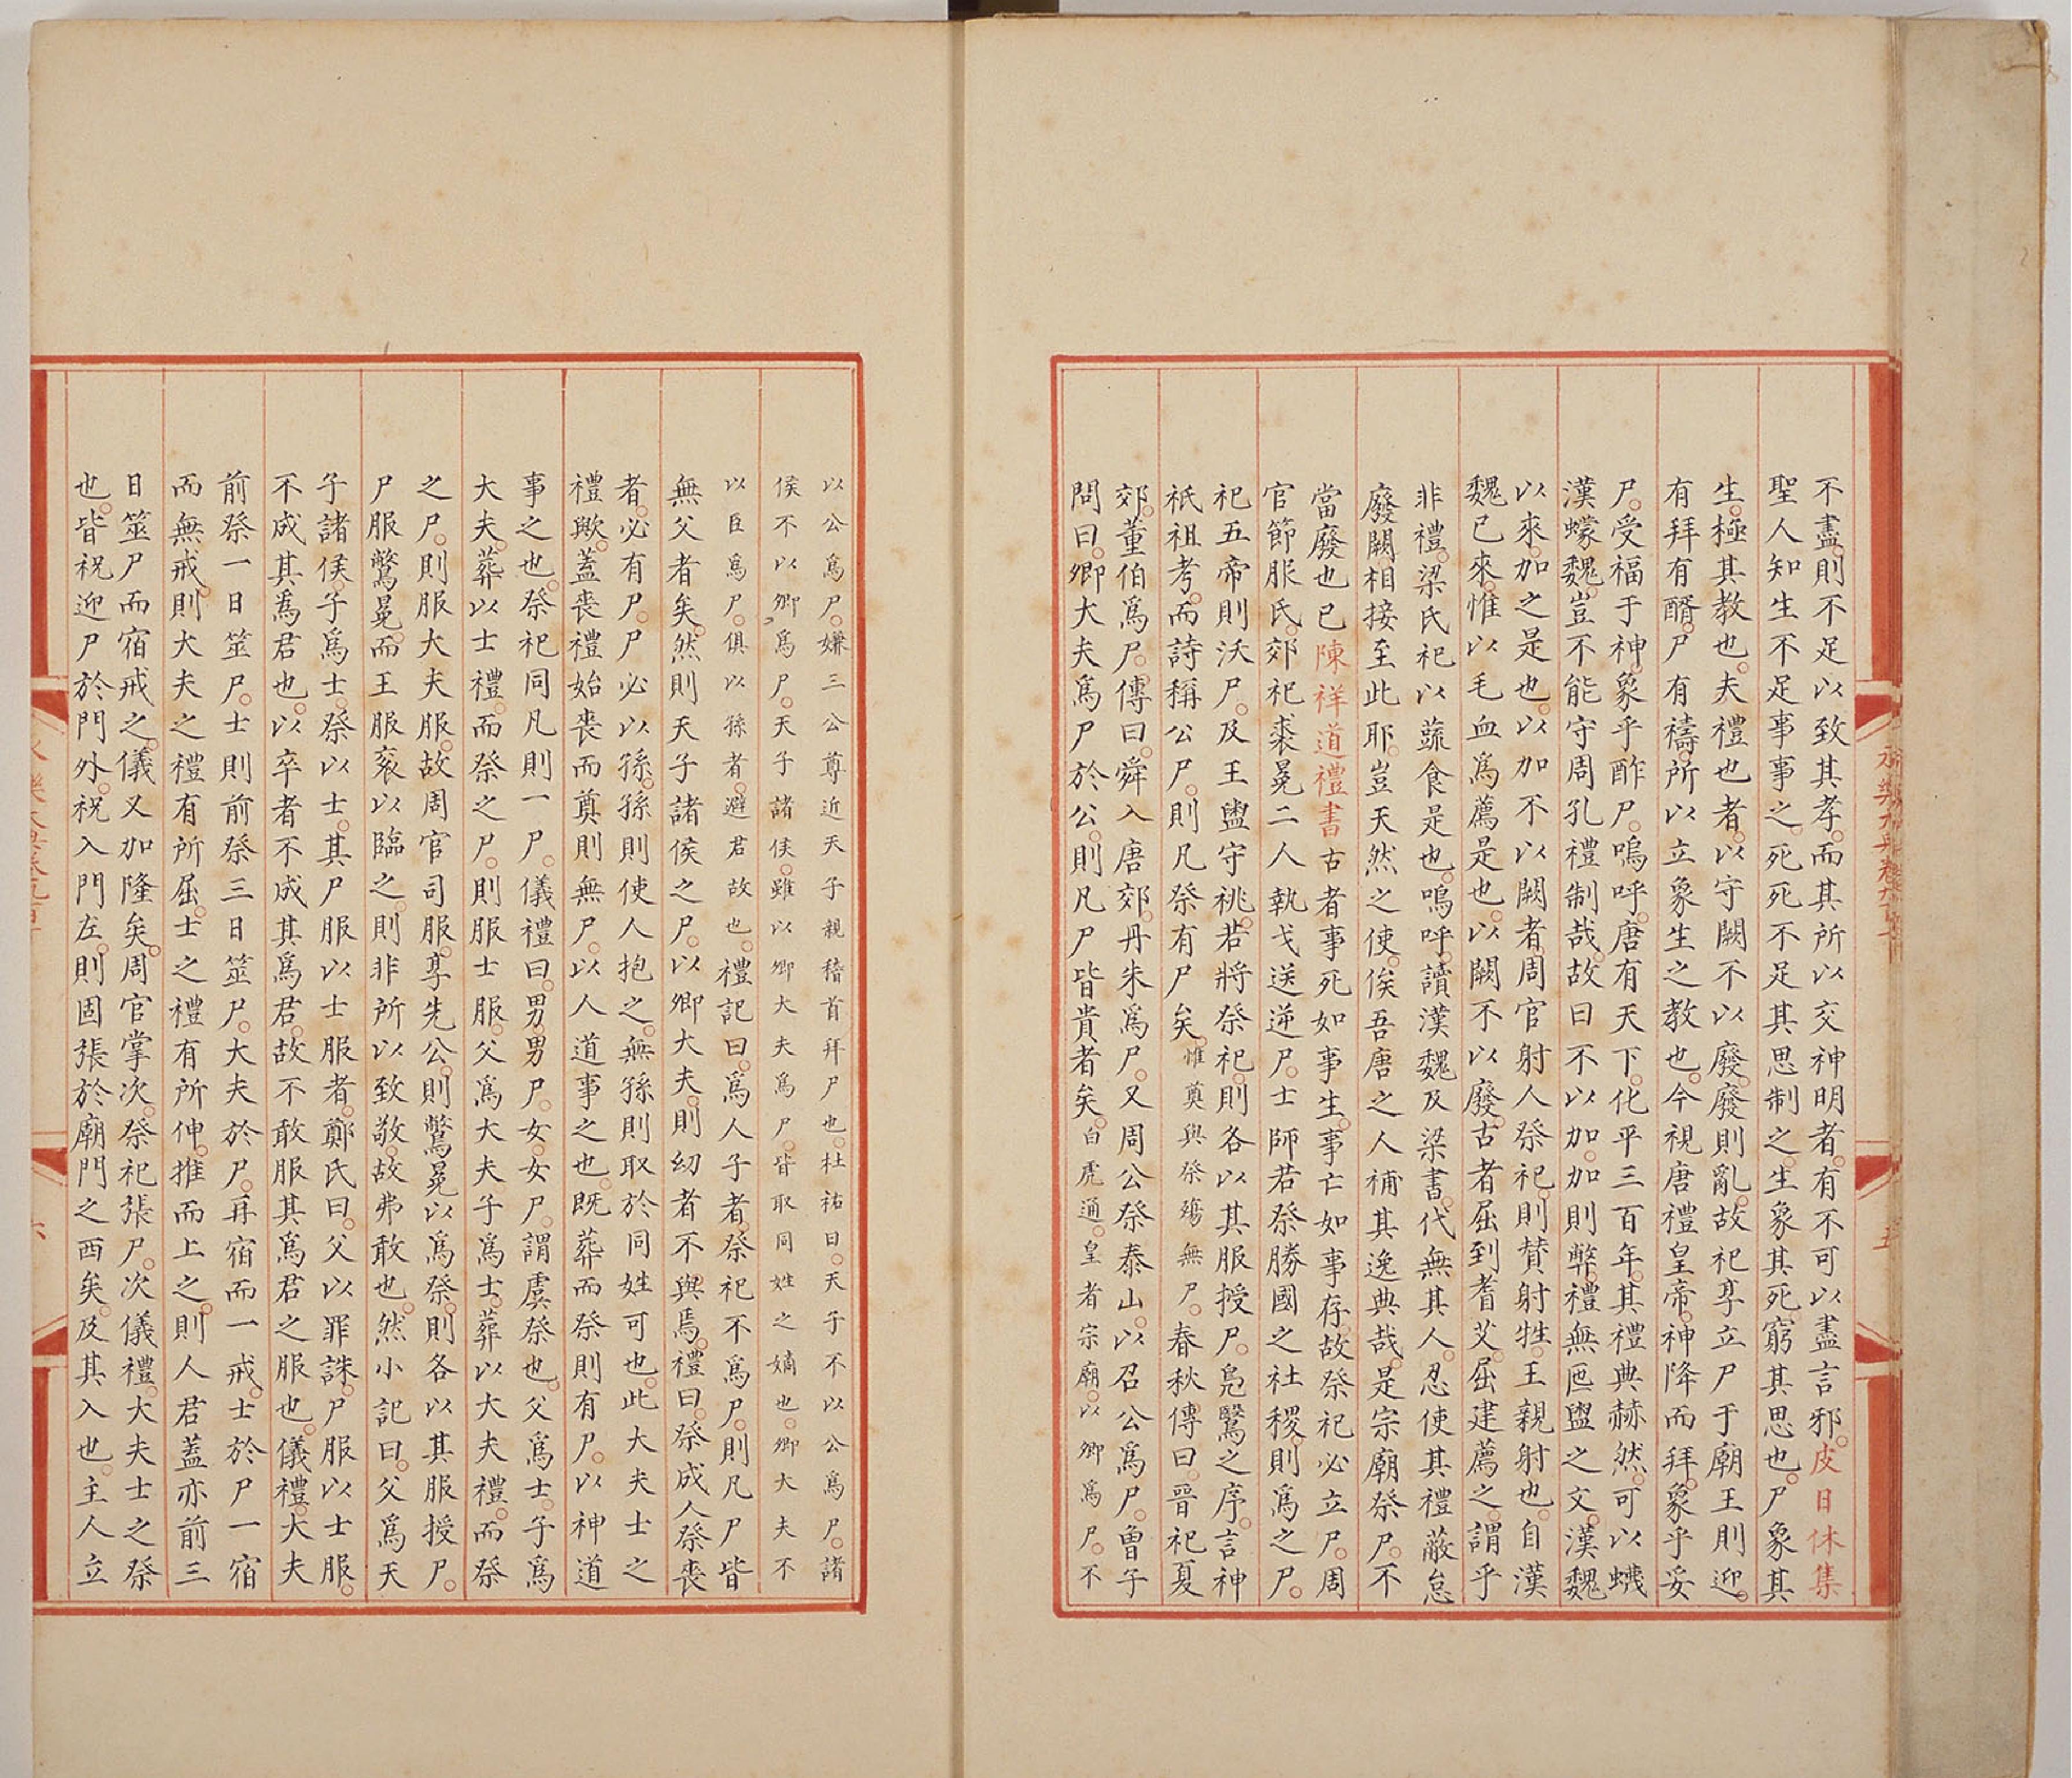 不盡。則不足以致其孝。而其所以交神明者。有不可以盡言邪。皮日休集
聖人知生不足事事之。死死不足其思制之。生象其死。窮其思也。尸象其
生。極其教也。夫禮也者。以守闕不以廢。廢則亂。故祀享立尸于廟王則迎。
有拜有酳。尸有禱。所以立象生之教也。今視唐禮皇帝。神降而拜。象乎妥
尸。受福于神。象乎酢尸。嗚呼。唐有天下。化平三百年。其禮典赫然。可以蟣
漢蠓魏。豈不能守周孔禮制哉。故曰不以加。加則弊。禮無匜盥之文。漢魏
以來。加之是也。以加不以闕者。周官射人祭祀。則贊射牲。王親射也。自漢
魏已來。惟以毛血爲薦是也。以闕不以廢。古者屈到耆芰。屈建薦之。謂乎
非禮。梁氏祀以蔬食是也。嗚呼。讀漢魏及梁書。代無其人。忍使其禮蔽怠
廢闕。相接至此耶。豈天然之使。俟吾唐之人補其逸典哉。是宗廟祭尸。不
當廢也已陳祥道禮書古者事死如事生。事亡如事存。故祭祀必立尸。周
官節服氏。郊祀裘冕二人執戈送逆尸。士師若祭勝國之社稷。則爲之尸。
祀五帝則沃尸。及王盥守祧。若將祭祀。則各以其服授尸。鳧鷖之序。言神
祇祖考。而詩稱公尸。則凡祭有尸矣。惟奠與祭殤無尸。春秋傳曰。晉祀夏
郊。董伯爲尸。傳曰。舜入唐郊。丹朱爲尸。又周公祭泰山。以召公爲尸。曾子
問曰。卿大夫爲尸於公。則凡尸皆貴者矣。白虎通。皇者宗廟。以卿爲尸。不
以公爲尸。嫌三公尊近天子親稽首拜尸也。杜祐曰。天子不以公爲尸。諸
侯不以卿爲尸。天子諸侯。雖以卿大夫爲尸。皆取同姓之嫡也。卿大夫不
以臣爲尸。俱以孫者。避君故也。禮記曰。爲人子者。祭祀不爲尸。則凡尸皆
無父者矣。然則天子諸侯之尸。以卿大夫。則幼者不與焉。禮曰。祭成人祭喪
者。必有尸。尸必以孫。孫則使人抱之。無孫則取於同姓可也。此大夫士之
禮歟。蓋喪禮始喪而奠則無尸。以人道事之也。既葬而祭則有尸。以神道
事之也。祭祀同凡則一尸。儀禮曰。男男尸。女女尸。謂虞祭也。父爲士。子爲
大夫。葬以士禮。而祭之尸。則服士服。父爲大夫子爲士。葬以大夫禮。而祭
之尸。則服大夫服。故周官司服。享先公。則鷩冕以爲祭。則各以其服授尸。
尸服鷩冕。而王服衮以臨之。則非所以致敬。故弗敢也。然小記曰。父爲天
子諸侯。子爲士。祭以士。其尸服以士服者。鄭氏曰。父以罪誅。尸服以士服。
不成其爲君也。以卒者不成其爲君。故不敢服其爲君之服也。儀禮。大夫
前祭一日筮尸。士則前祭三日筮尸。大夫於尸。再宿而一戒。士於尸一宿
而無戒。則大夫之禮有所屈。士之禮有所伸。推而上之。則人君蓋亦前三
日筮尸而宿戒之。儀又加隆矣。周官掌次。祭祀張尸。次儀禮。大夫士之祭
也。皆祝迎尸於門外。祝入門左。則固張於廟門之西矣。及其入也。主人立